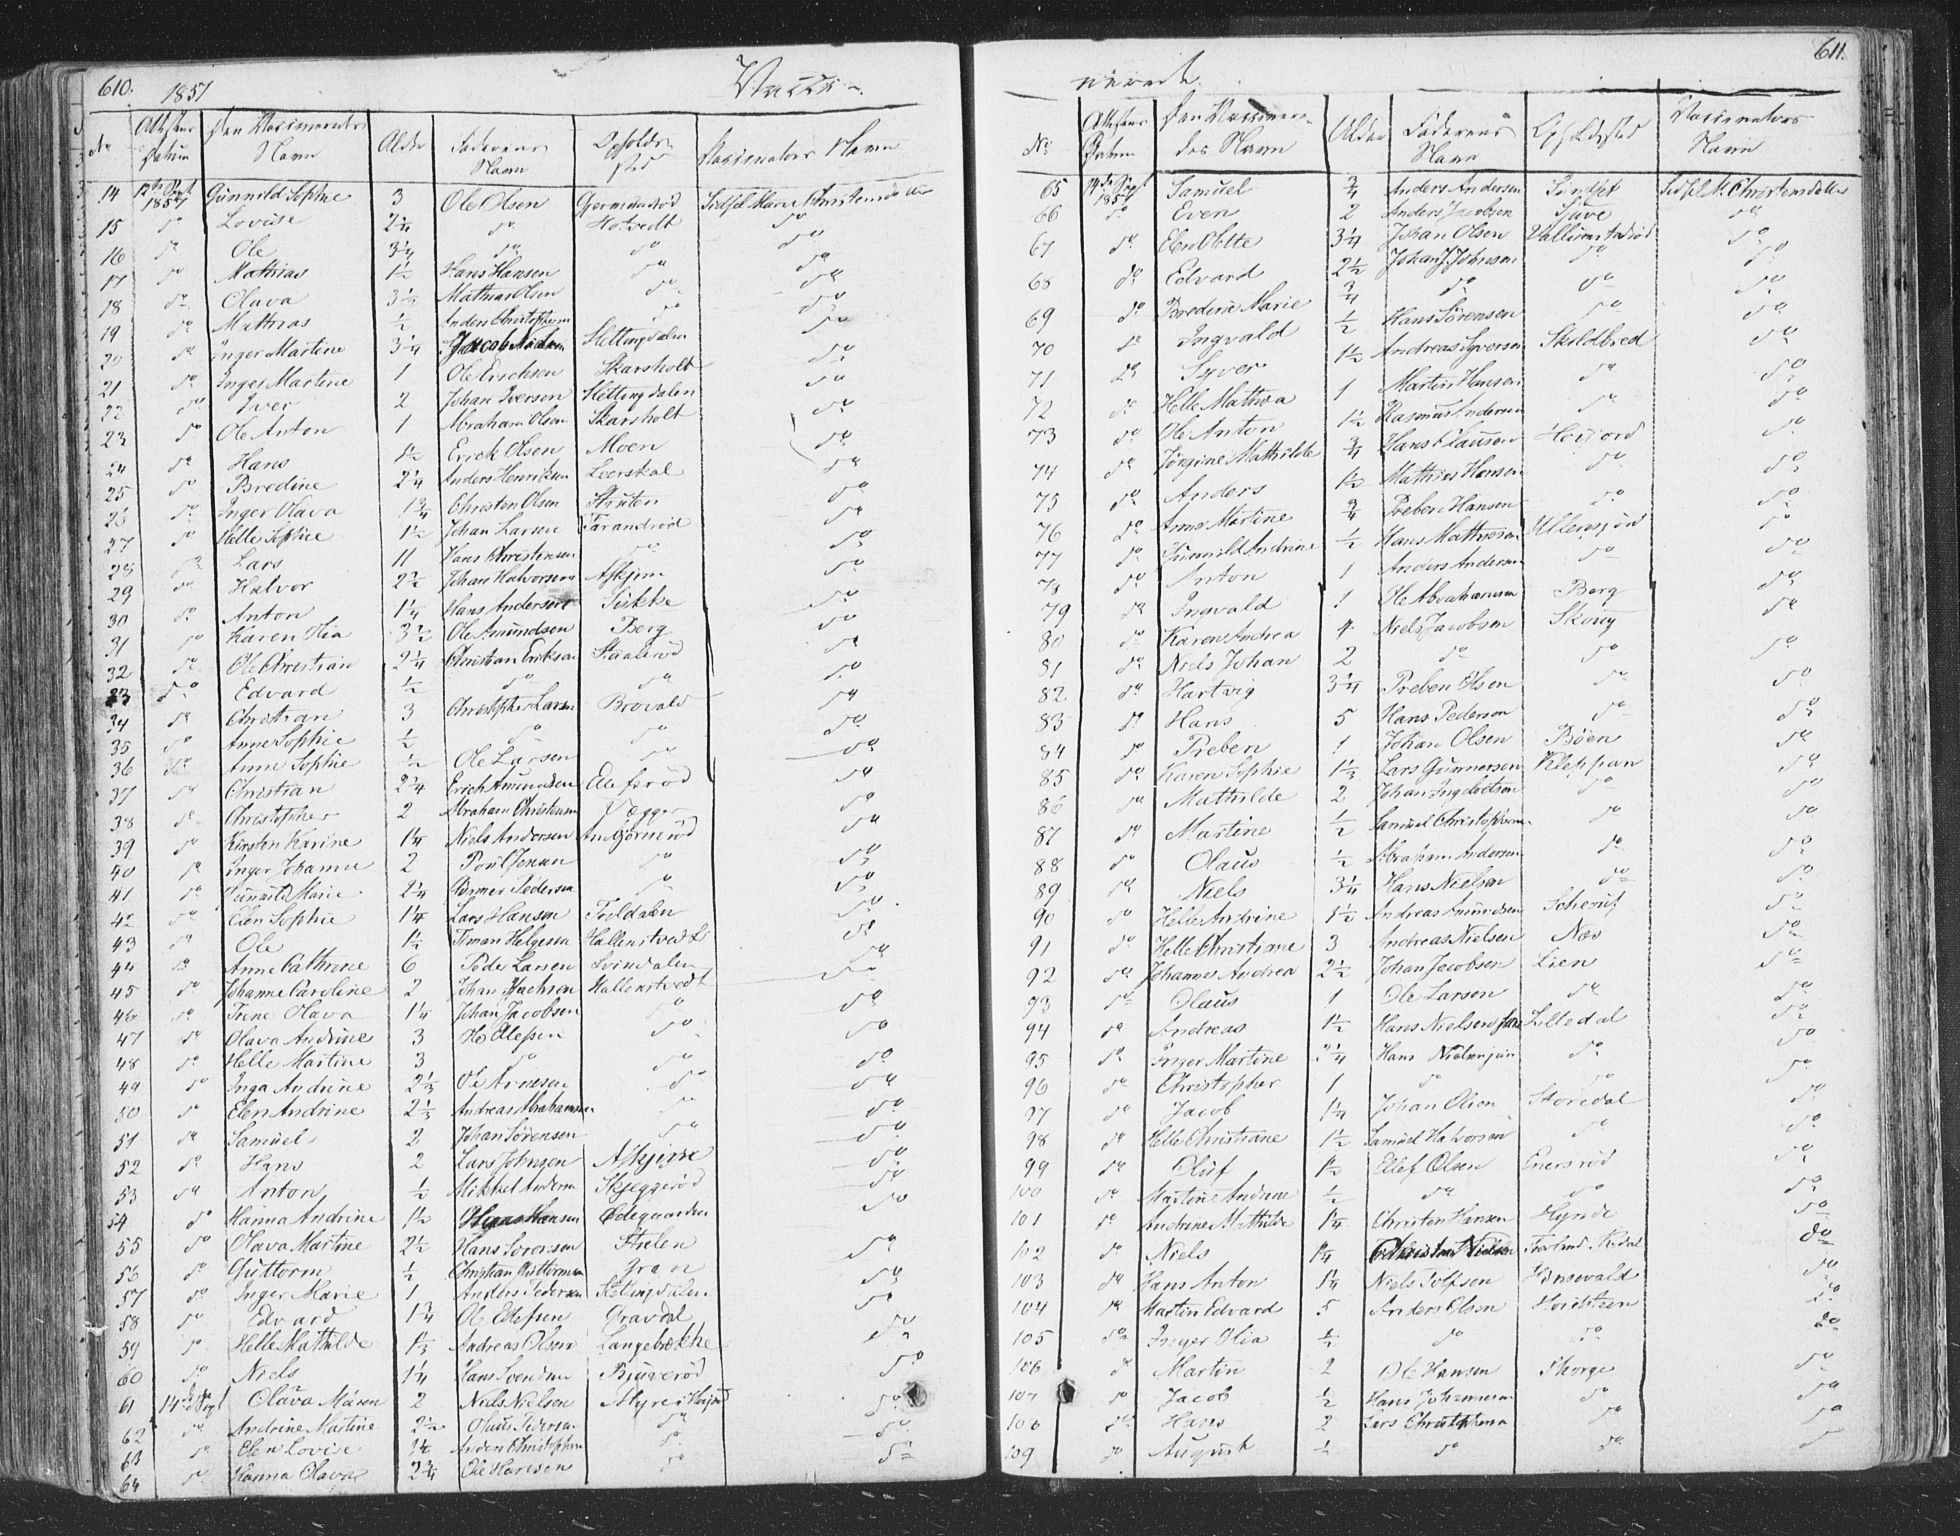 610. 1857 Vacci-
No Attestens Datum Den Vaccineredes Navn Alder Faderens Navn Opholds Sted Vaccinators Navn
14 12te Sept 1857 Gunnild Sophie 3 Ole Olsen Sidsel Marie Christensdatter
15 do Lovise 2 1/4 do Hotvedt do
16 do Ole 3 1/4 do do do
17 do Mathias 1 1/2 Hans Hansen do do
18 do Olava 3 1/2 Mathias Olsen do do
19 do Mathias 1/2 Anders Christophersen do do
20 do Inger Martine 3 1/4 Jacob Slettingdalen do
21 do Inger Martine 1 Ole Erichsen Skarsholt do
22 do Iver 2 Johan Iversen Slettingdalen do
23 do Ole Anton 1 Abraham Olsen Skarsholt do
24 do Hans 1 1/2 Erick Olsen Moen do
25 do Bredine 2 1/4 Anders Henriksen Leerskal do
26 do Inger Olava 1 3/4 Christen Olsen Struten do
27 do Helle Sophie 1 1/2 Johan Larsen Farandrød do
28 do Lars 11 Hans Christensen do do
29 do Halvor 2 1/2 Johan Halvorsen Askjem do
30 do Anton 1 1/4 Hans Andersen Sukke do
31 do Karen Olia 3 1/2 Ole Amundsen Berg do
32 do Ole Christian 2 1/4 Christian Eriksen Staalerød do
33 do Edvard 1/2 do do do
34 do Christian 3 Christopher Larsen Brovald do
35 do Anne Sophie 1/2 do do do
36 do Anne Sophie 1/2 Ole Larsen do do
37 do Christian 2 1/4 Erich Amundsen do
38 do Christopher 2 Abraham Christensen Vægger do
39 do Kirsten Karine 1 1/4 Niels Andersen do
40 do Inger Johanne 2 Poul Jensen do do
41 do Gunnild Marie 2 1/4 Pedersen do do
42 do Elen Sophie 1 1/4 Lars Hansen Troldalen do
43 do Ole 1 1/2 Timan Helgesen Hallenstvedt do
44 do Anne Cathrine 6 Peder Larsen Svindalen do
45 do Johanne Caroline 2 Johan Hallenstvedt do
46 do Trine Olava 1 1/4 Johan Jacobsen do do
47 do Olava Andrine 3 H Ellefsen do do
48 do Helle Martine 3 do do do
49 do Inga Andrine 2 1/3 Ole Arnesen do do
50 do Elen Andrine 2 1/3 Andreas Abrahamsen do do
51 do Samuel 2 Johan Sørensen do do
52 do Hans 2 Lars Johnsen Askjem do
53 do Anton 1/2 Mikkel Andersen Skjeggerød do
54 do Hanna Andrine 1 1/2 Hansen Ødegaarden do
55 do Olava Martine 2 1/2 Hans Sorensen Stulen do
56 do Guttorm 1/2 Christian Guttormsen Gran do
57 do Inger Marie 1 Anders Pedersen do
58 do Edvard 1 3/4 Ole Ellefsen Gravdal do
59 do Helle Mathilde 1 1/3 Andreas Olsen Langebækhe do
60 do Niels 1 1/4 Hans Svendsen Bjuverød do
61 14de Sept Olava Maren 2 Niels Nielsen Myre i Høijord do
62 do Andrine Martine 2 1/2 Olaus Pedersen do do
63 do Elen Lovise 1 1/2 Anders Christophersen do do
64 do Hanna Olava 2 3/4 Ole Hansen do
nerede. 611.
No Attestens Datum Den Vaccineredes Navn Alder Faderens Navn Opholdssted Vaccinators Navn
65 14de Sept 1857 Samuel 3/4 Anders Andersen Sidsel M. Christensdatter
66 do Even 2 Anders Jacobsen do
67 do Elen Olette 3 1/4 Johan Olsen do
68 do Edvard 2 1/2 Johan J. Johnsen do do
69 do Bredera Marie 3/4 do do do
70 do Ingvald 1/2 Hans Sørensen do do
71 do Syver 1 1/2 Andreas Syversen Skildbred do
72 do Helle Mathea 1 Martin Hansen do do
73 do Ole Anton 1 1/2 Rasmus Andersen do do
74 do Jørgine Mathilde 3/4 Hans Clausen Høijord do
75 do Anders 1 1/2 Mathias Hansen do do
76 do Anne Martine 3/4 Preben Hansen do do
77 do Gunnild Andrine 1/2 Hans Mathiesen do
78 do Anton 1 Anders Andersen do do
79 do Ingvald 1 Ole Abrahamsen Berg do
80 do Karen Andrea 4 Niels Jacobsen Skoug do
81 do Niels Johan 2 do do do
82 do Hartvig 3 1/4 Preben Olsen do do
83 do Hans 5 Hans Pedersen do do
84 do Preben 1 Johan Olsen Bøen do
85 do Karen Sophie 1 1/3 Lars Gunnersen Kleppan do
86 do Mathilde 2 Johan Ingebretsen do do
87 do Martine 1/2 Samuel Christophersen do do
88 do Olaus 1/2 Abraham Andersen do do
89 do Niels 3 1/4 Hans Nielsen do do
90 do Helle Andrine 1 1/2 Andreas Amundsen do
91 do Helle Christiane 3 Andreas Nielsen Nes do
92 do Johanne Andrea 2 1/2 Johan Jacobsen Lien do
93 do Olaus 1 Ole Larsen do do
94 do Andreas 1 1/2 Hans Nielsen Lilledal do
95 do Inger Martine 3 1/4 Hans Nielsen jun do do
96 do Christopher 1 do do do
97 do Jacob 1 1/4 Johan Olsen Storedal do
98 do Helle Christiane 1 1/2 Samuel Halvorsen do do
99 do Oluf 1 1/2 Ellef Olsen Enersrød do
100 do Martine Andrine 1/2 do do do
101 do Andrine Mathilde 1 1/4 Christen Hansen Hynde do
102 do Niels 1 1/4 Christen Nielsen do
103 do Hans Anton 1 1/4 Niels Tolfsen do
104 do Martin Edvard 5 Anders Olsen Hvidsteen do
105 do Inger Olia 1/2 do do do
106 do Martin 2 Ole Hansen Skorge do
107 do Jacob 1/2 Hans Johannesen do do
108 do Hans 2 Lars Christophersen do do
109 do August 1/2 do do do